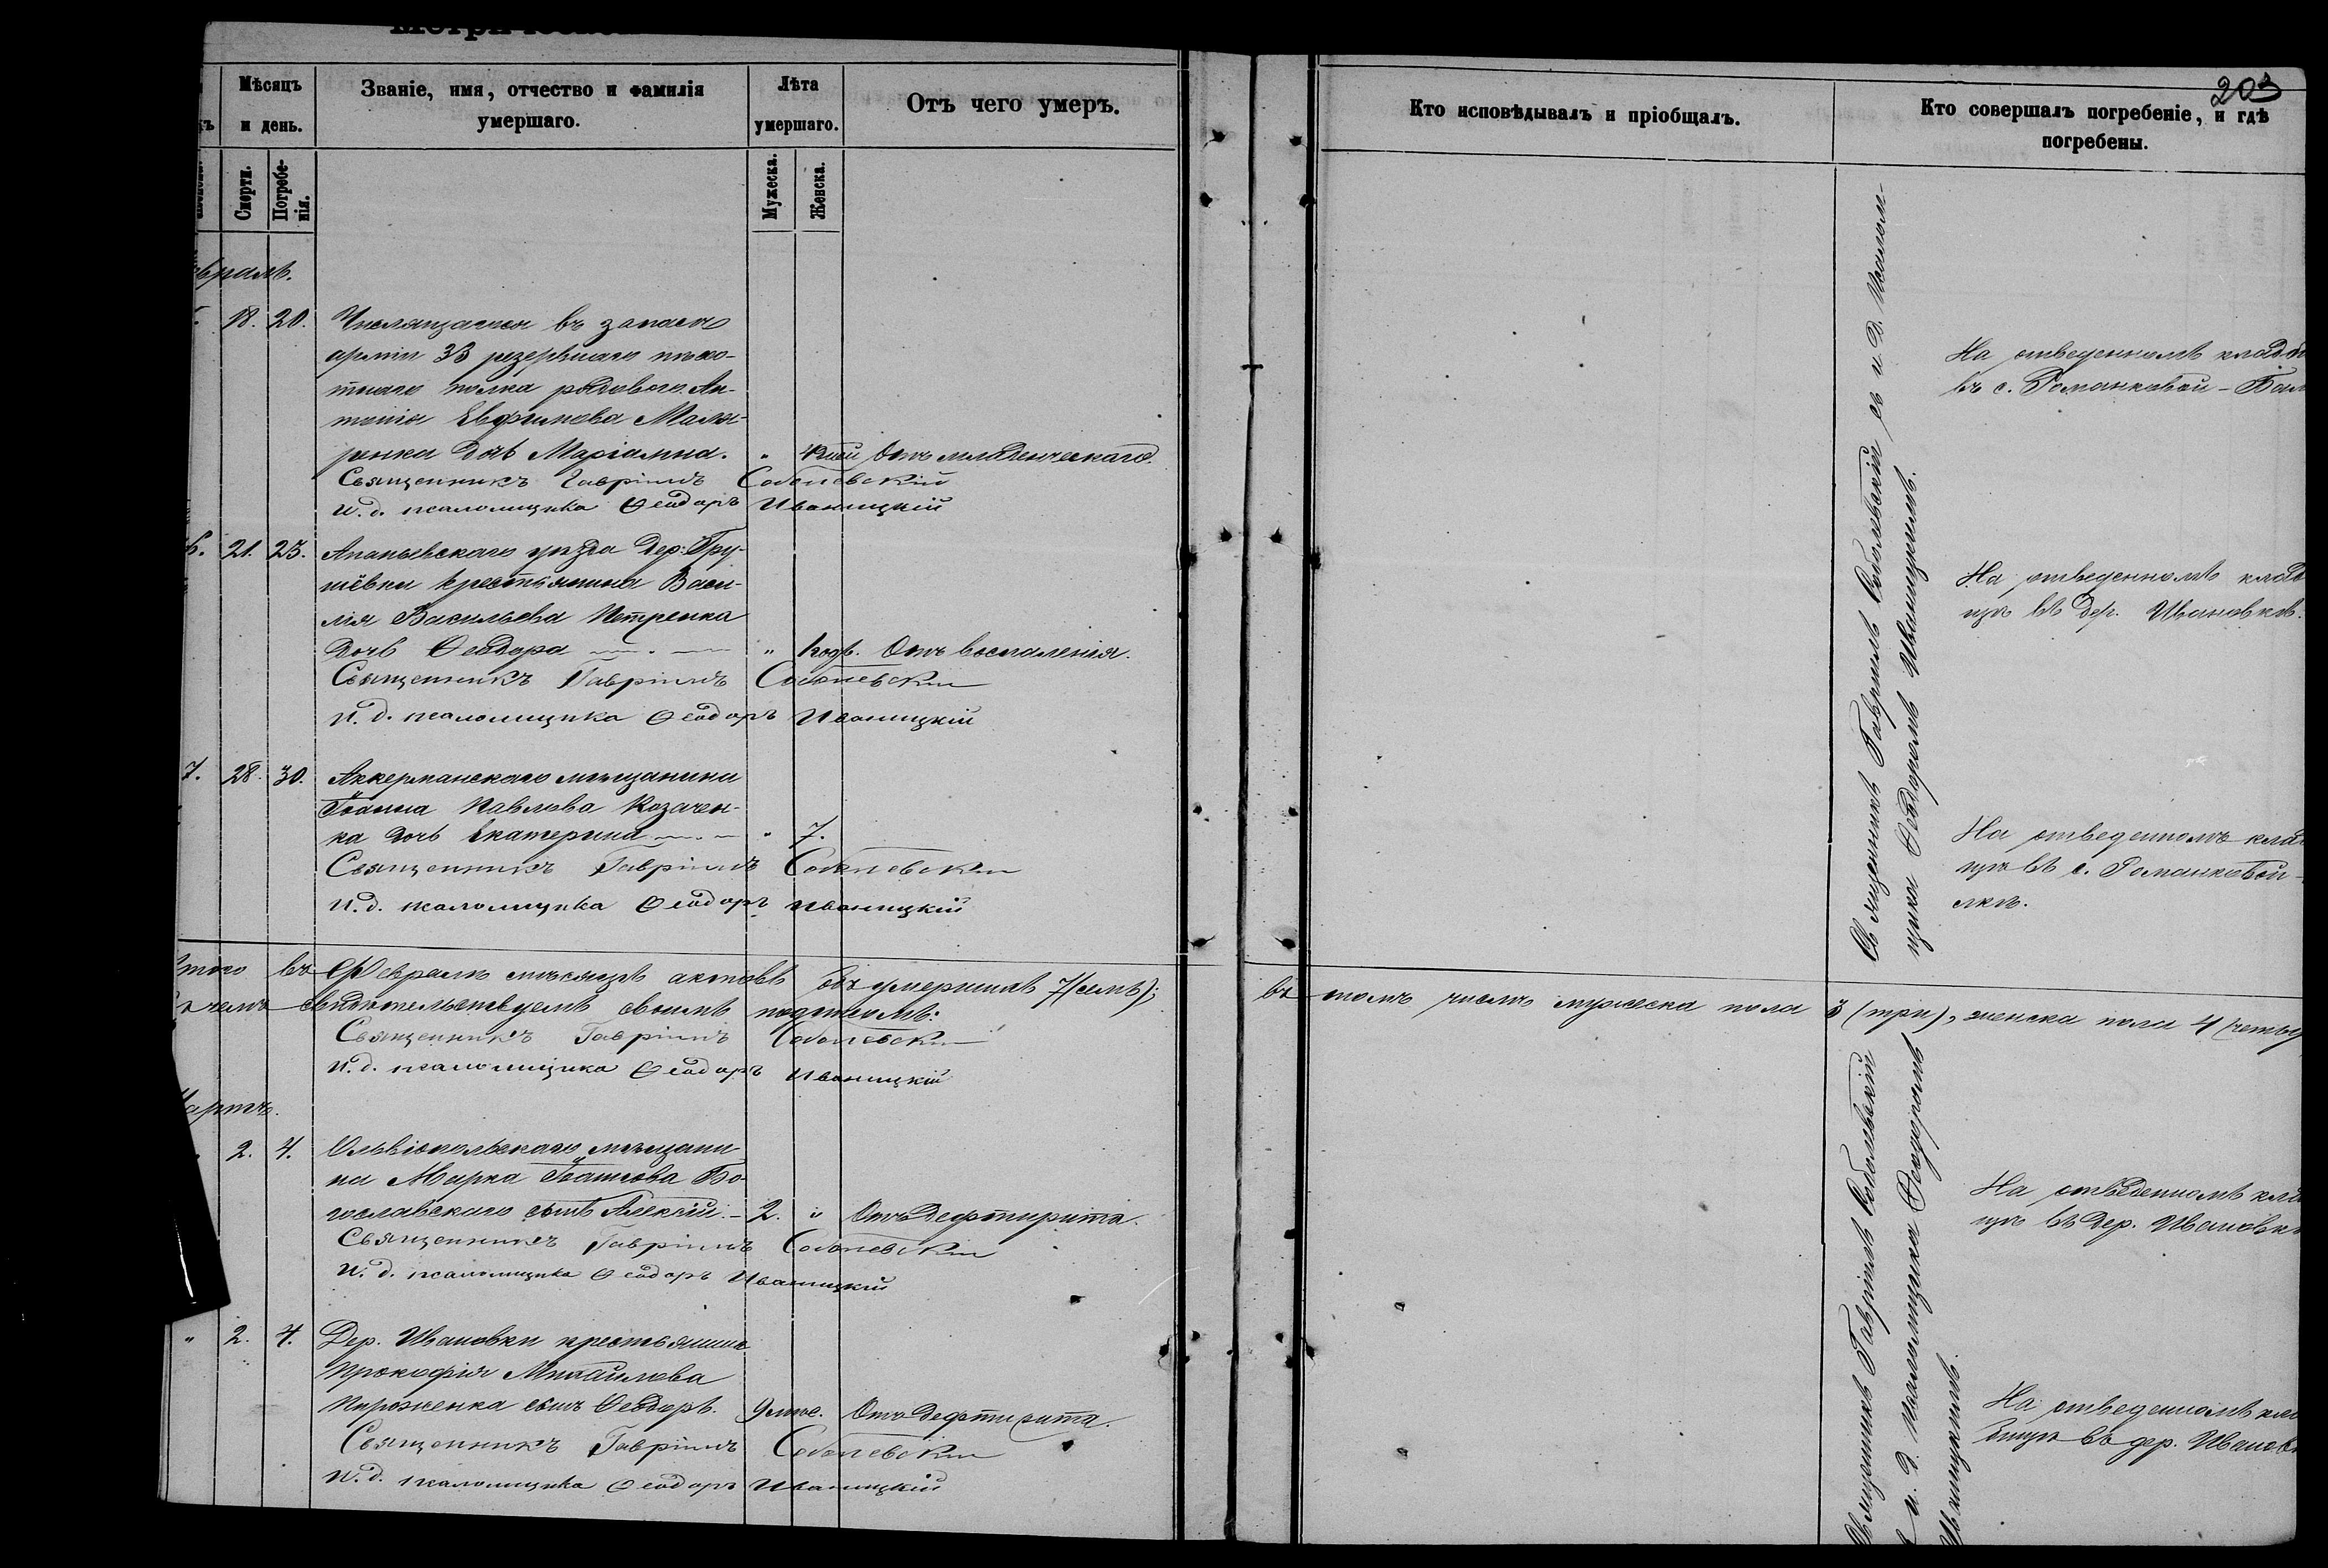 203
Мѣсяцъ и день.
Званіе, имя, отчество и фамилія умершаго.
Лѣта умершаго.
Отъ чего умеръ.
Кто исповѣдывалъ и пріобщалъ.
Кто совершалъ погребеніе, и гдѣ погребены.
Смерти.
Погребенія.
Мужеска.
Женска.
18. 20. Числящагося въ запасѣ
арміи 33 резервнаго пѣхо-
тнаго полка рядового Ан-
тонія Евфимова Маля-
ренка дочь Маріамна. " Отъ младенческаго.
Священникъ Гавріилъ Соболевскій
и. д. псаломщика Ѳеодоръ Иваницкій
На отведенномъ кладб
въ с. Романковой-Бал
6. 21. 23. Ананьевскаго уѣзда дер. Гру-
шёвки крестьянина Васи-
лія Васильева Петренка
дочь Ѳеодора " 1 годъ. Отъ воспаленія.
Священникъ Гавріилъ Соболевскій
и. д. псаломщика Ѳеодоръ Иваницкій
На отведенномъ клад
щѣ въ дер. Ивановкѣ.
7. 28. 30. Аккерманскаго мѣщанина
Іоанна Павлова Козачен-
ка дочь Екатерина " 7.
Священникъ Гавріилъ Соболевскій
и. д. псаломщика Ѳеодоръ Иваницкій
На отведенномъ клад
щѣ въ с. Романковой-
лкѣ.
Священникъ Гавріилъ Соболевскій съ и. д. псалом-
щика Ѳеодоромъ Иваницкимъ.
Итого въ Февралѣ мѣсяцѣ актовъ объ умершихъ 7 (семь); въ томъ числѣ мужеска пола 3 (три), женска пола 4 (четы
чемъ свидѣтельствуемъ своимъ подписомъ:
Священникъ Гавріилъ Соболевскій
и. д. псаломщика Ѳеодоръ Иваницкій
Мартъ.
2. 4. Ольвіопольскаго мѣщани-
на Марка Іоаннова Бо-
гославскаго сынъ Алексій. 2. " Отъ дефтирита.
Священникъ Гавріилъ Соболевскій
и. д. псаломщика Ѳеодоръ Иваницкій
На отведенномъ клад
щѣ въ дер. Ивановк
" 2. 4. Дер. Ивановки крестьянина
Прокофія Михайлова
сынъ Ѳеодоръ. 9 мѣс. Отъ дефтирита.
Священникъ Гавріилъ Соболевскій
и. д. псаломщика Ѳеодоръ Иваницкій
На отведенномъ кла
бищѣ въ дер. Иванов
Священникъ Гавріилъ Соболевскій
съ и. д. псаломщика Ѳеодоромъ
Иваницкимъ.